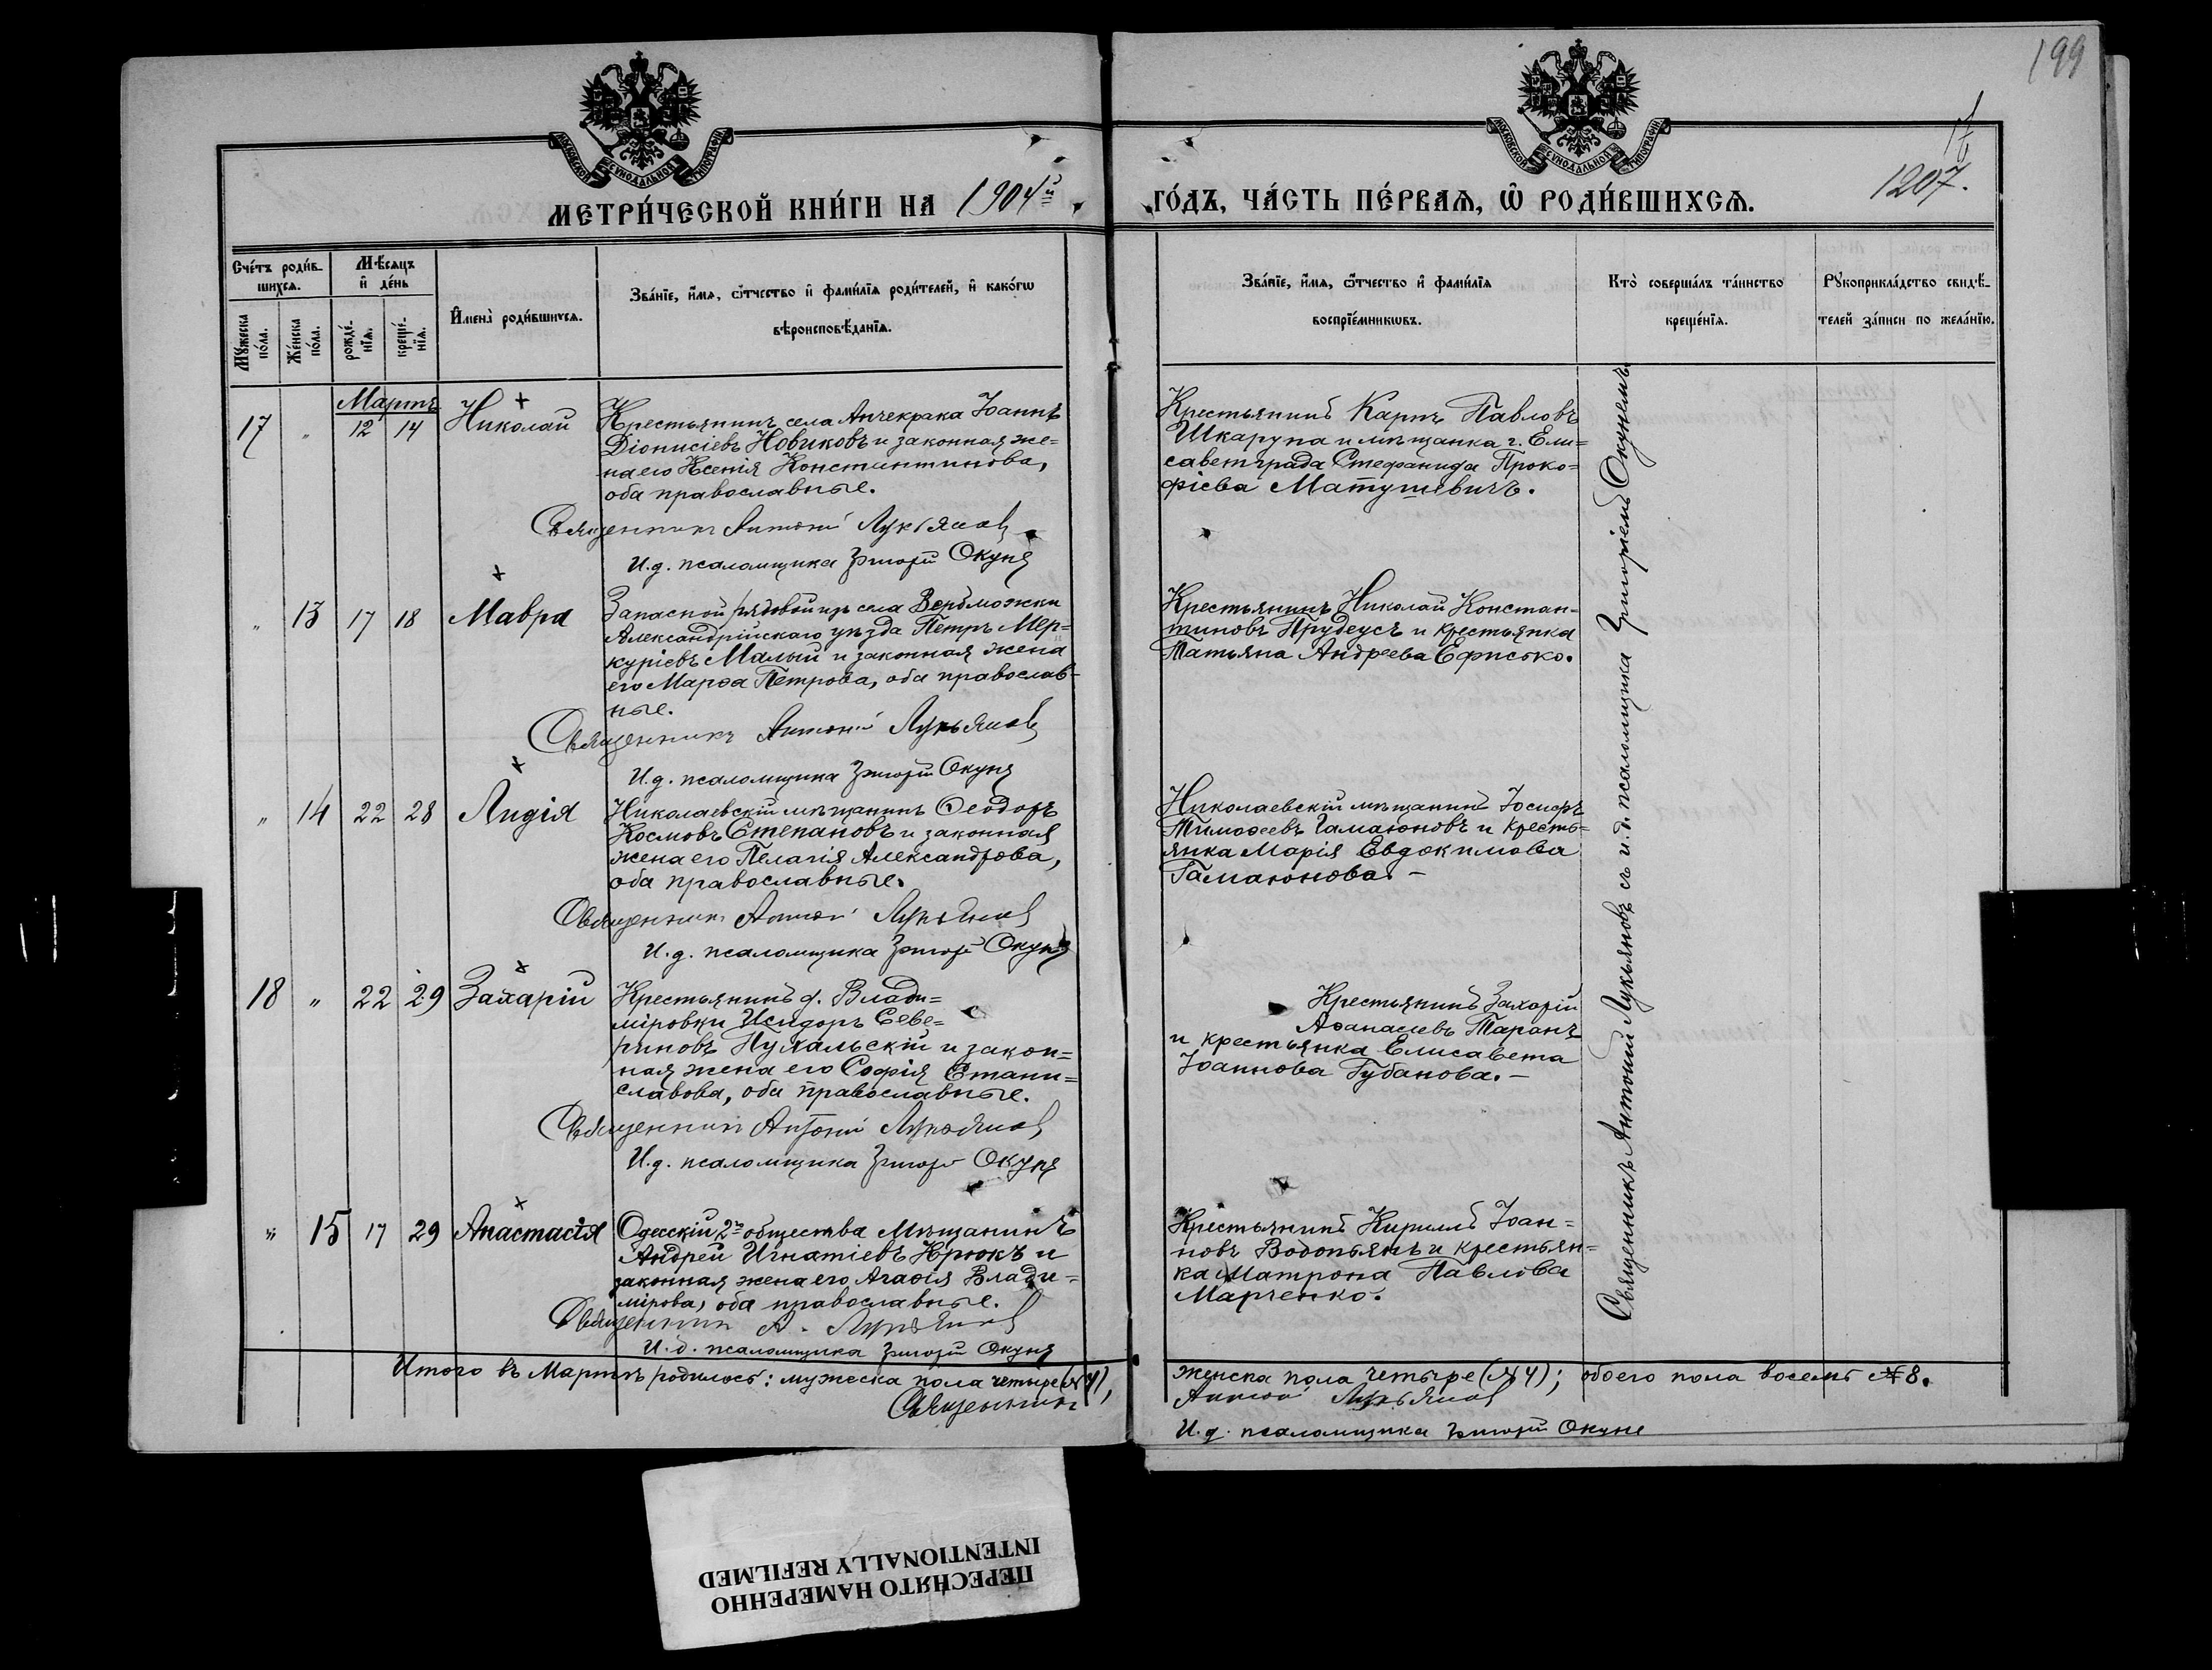 199
17
1207.
МОСКОВСКОЙ СѴНОДАЛЬНОЙ ТИПОГРАФІИ
МОСКОВСКОЙ СѴНОДАЛЬНОЙ ТИПОГРАФІИ
МЕТРИ́ЧЕСКОЙ КНИ́ГИ НА 1904й
ГО́ДЪ, ЧА́СТЬ ПЕ́РВАѦ, Ѽ РОДИ́ВШИХСѦ.
Сче́тъ роди́в-
шихсѧ.
Мѣ́сѧцъ
и҆ де́нь
Мꙋ́жеска
по́ла.
Же́нска
по́ла.
рожде́-
нїѧ.
креще́-
нїѧ.
И҆мена̀ роди́вшихсѧ.
Зва́нїе, и҆́мѧ, ѻ҆́тчество и҆ фами́лїѧ роди́телей, и҆ како́гѡ
вѣроисповѣ́данїѧ.
Зва́нїе, и҆́мѧ, ѻ҆́тчество и҆ фами́лїѧ
воспрїе́мникѡвъ.
Кто̀ соверша́лъ та́инство
креще́нїѧ.
Рꙋкоприкла́дство свидѣ́-
телей за́писи по жела́нїю.
Мартъ
17 " 12 14 Николай
Крестьянинъ села Анчекрака Іоаннъ
Діонисіевъ Новиковъ и законная же=
на его Ксенія Константинова,
оба православные.
Священникъ Антоній Лукьянов
И.д. псаломщика Григорій Окуня
Крестьянинъ Карпъ Павловъ
Шкарупа и мѣщанка г. Ели=
саветграда Стефанида Проко=
фіева Матушевичъ.
" 13 17 18 Мавра
Запасной рядовой изъ села Вербложки
Александрійскаго уѣзда Петръ Мер=
куріевъ Малый и законная жена
его Марѳа Петрова, оба православ-
ные.
Священникъ Антоній Лукьянов
И.д. псаломщика Григорій Окуня
Крестьянинъ Николай Констан-
тиновъ Прудеусъ и крестьянка
Татьяна Андреева
" 14 22 28 Лидія
Николаевскій мѣщанинъ Ѳеодоръ
Космовъ Степановъ и законная
жена его Пелагія Александрова,
оба православные.
Священникъ Антоній Лукьянов
И.д. псаломщика Григорій Окуня
Николаевскій мѣщанинъ Іосифъ
Тимоѳеевъ Гамаюновъ и кресть=
янка Марія Евдокимова
Гамаюнова. –
18 " 22 29 Захарій
Крестьянинъ д. Влади=
міровки Исидоръ Севе=
риновъ Пухальскій и закон=
ная жена его Софія Стани=
славова, оба православные.
Священникъ Антоній Лукьянов
И.д. псаломщика Григорій Окуня
Крестьянинъ Захарій
Аѳанасіевъ Таранъ
и крестьянка Елисавета
Іоаннова Губанова. –
" 15 17 29 Анастасія
Одесскій 2го общества мѣщанинъ
Андрей Игнатіевъ Крюкъ и
законная жена его Агаѳія Влади=
мірова, оба православные.
Священникъ А. Лукьянов
И.д. псаломщика Григорій Окуня
Крестьянинъ Кириллъ Іоан=
новъ Водопьянъ и крестьян=
ка Матрона Павлова
Марченко.
Священникъ Антоній Лукьяновъ съ и.д. псаломщика Григоріемъ Окунемъ
Итого въ Мартѣ родилось: мужеска пола четыре (№ 4), женска пола четыре (№ 4); обоего пола восемь № 8.
Священникъ Антоній Лукьянов
И.д. псаломщика Григорій Окуня
ПЕРЕСНЯТО НАМЕРЕННО
INTENTIONALLY REFILMED